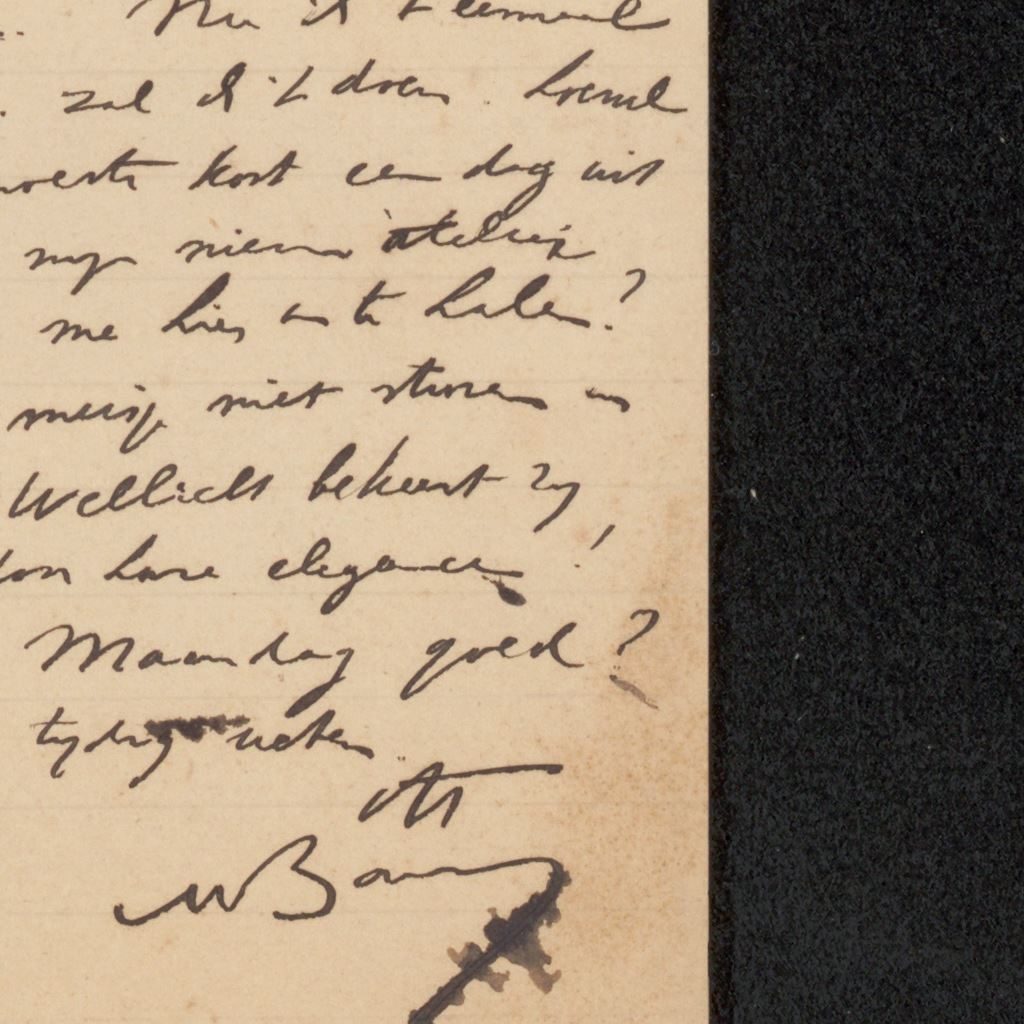 Nu ik 't eenmaal
zal ik 't doen. hoewel
kost een dag uit
myn nieuw atelier
me hier en te halen?
meisje niet sturen en
Wellicht bekeert zy
hare elegance!
Maandag goed?
tydig weten
tt
MBauer